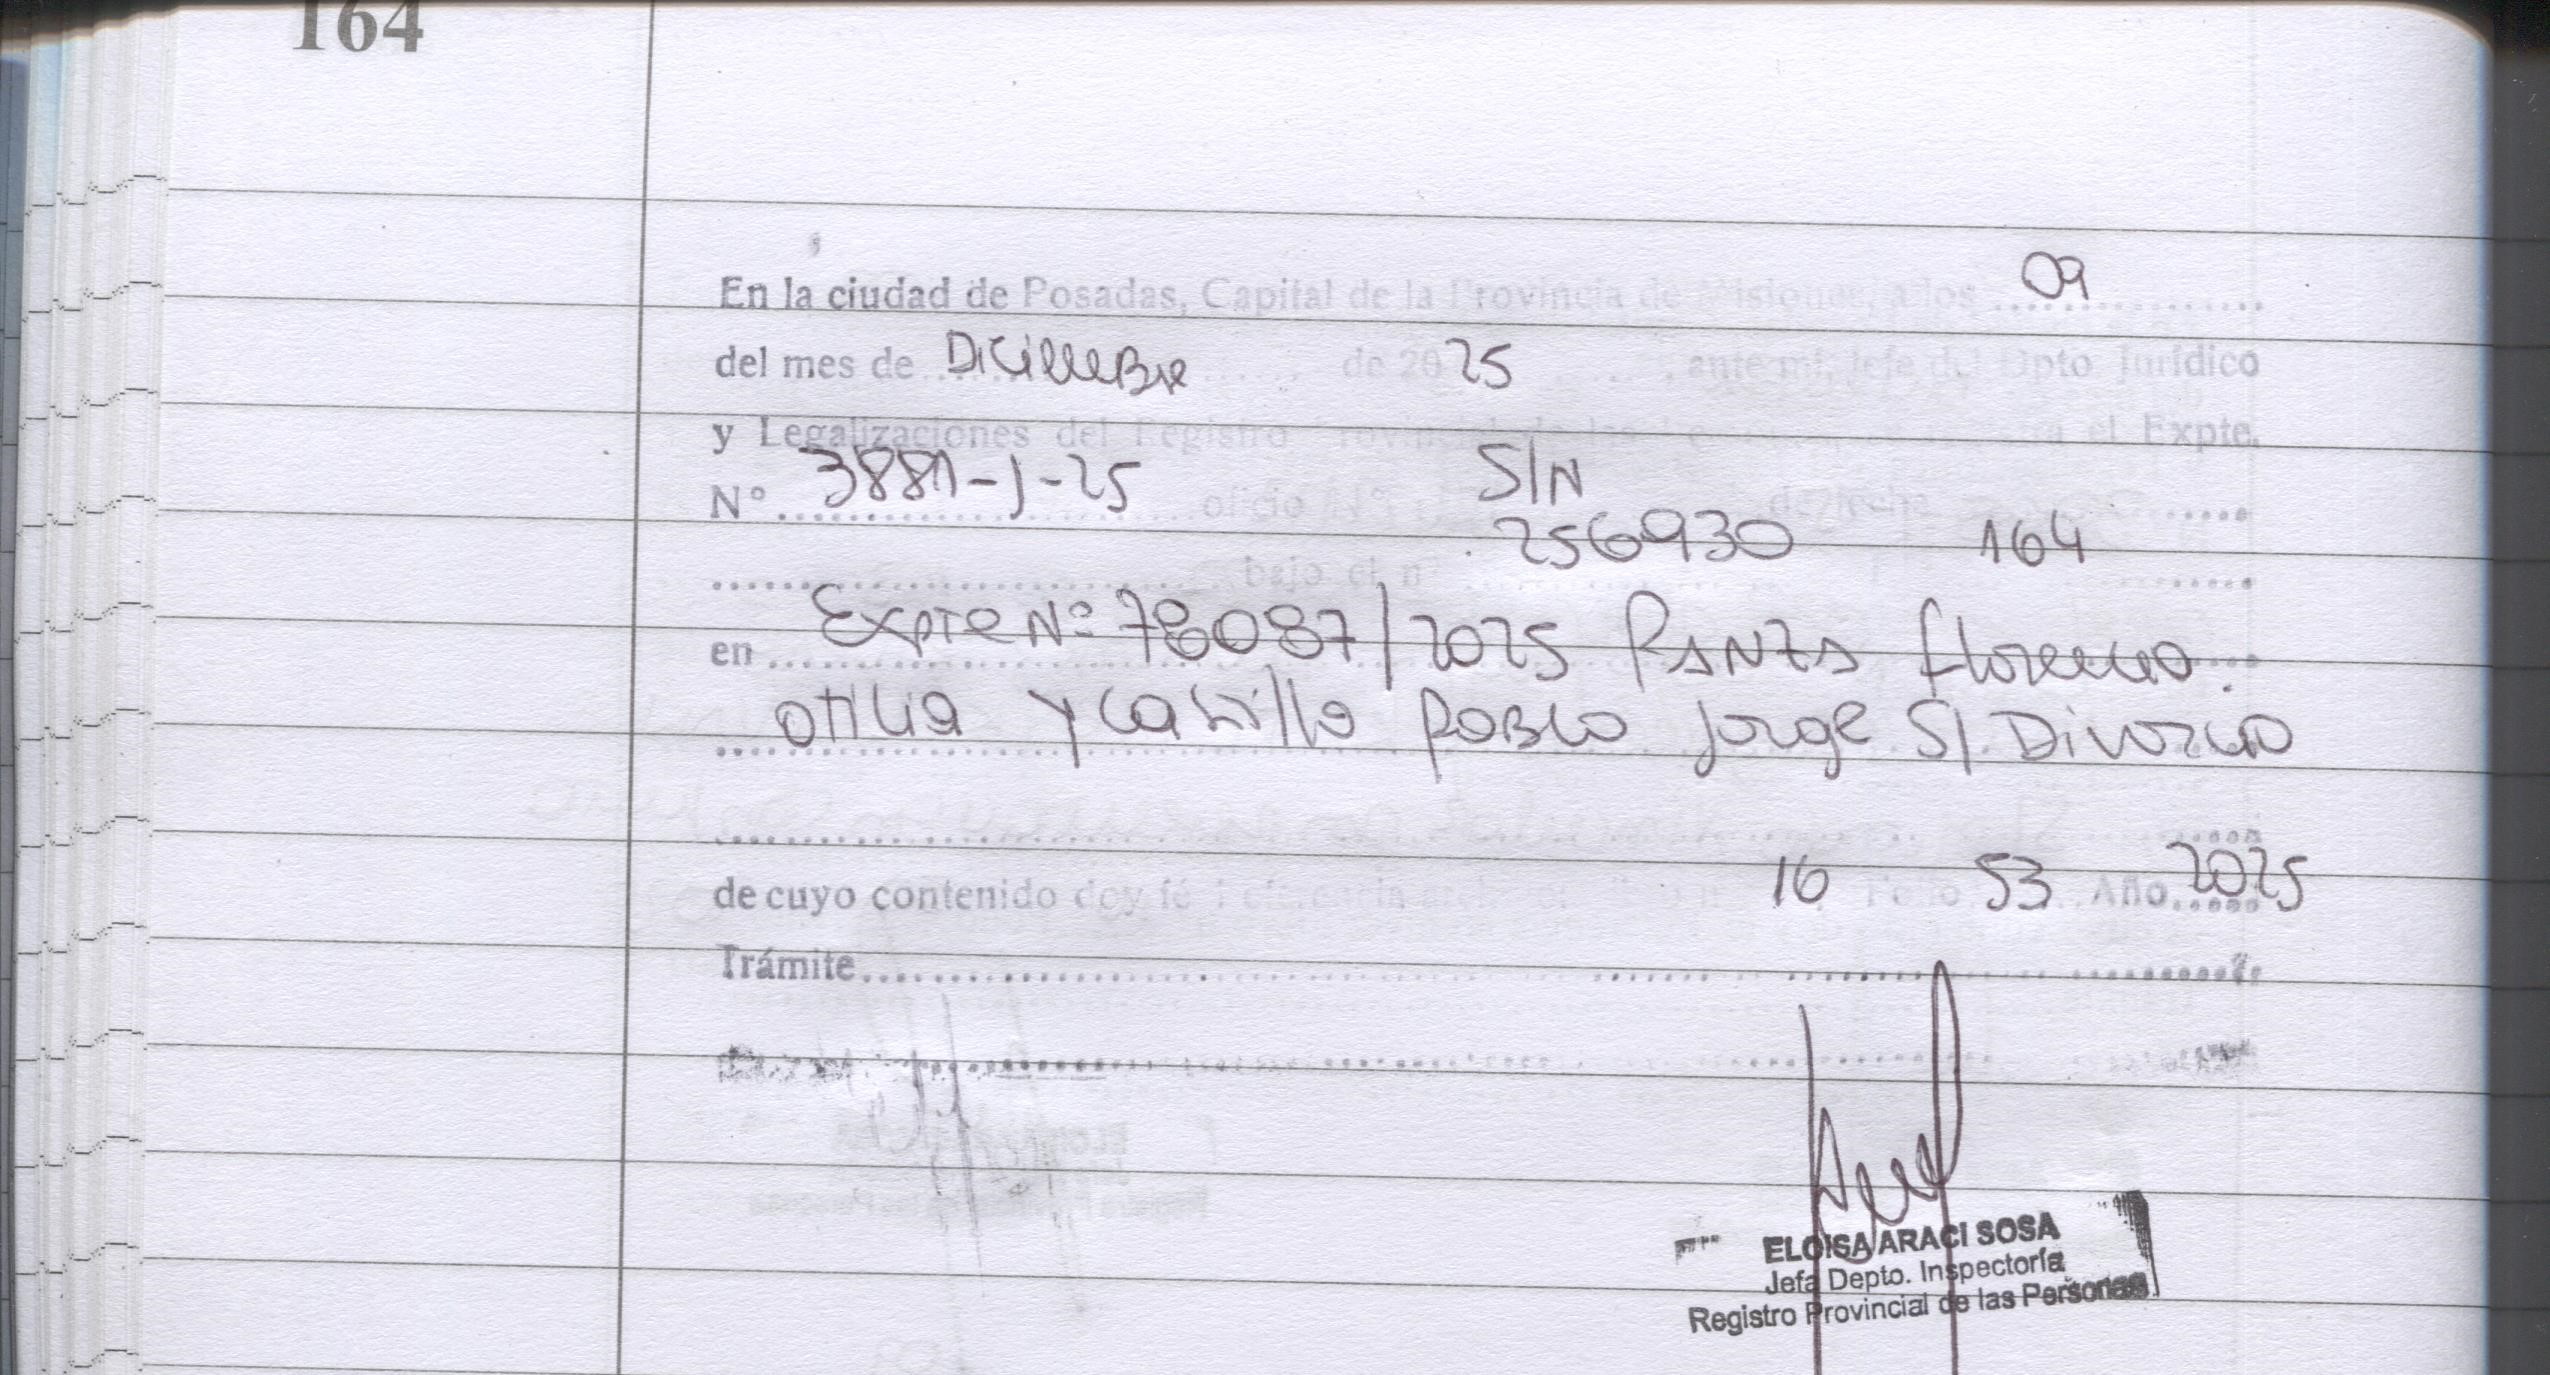 164
En la ciudad de Posadas, Capital de la Provincia de Misiones, a los 09
del mes de Diciembre de 2025, ante mi, Jefe del Dpto Jurídico
y Legalizaciones del Registro Provincial de las el Expte.
Nº 3881-J-25 oficio Nº S/N de fecha
bajo el nº 256930 164
en Expte Nº 78087/2025 Panza Florencia
Otilia y Castillo Pablo Jorge S/ Divorcio
de cuyo contenido doy fé 16 Folio 53 Año 2025
Trámite
ELOISA ARACI SOSA
Jefa Depto. Inspectoría
Registro Provincial de las Personas